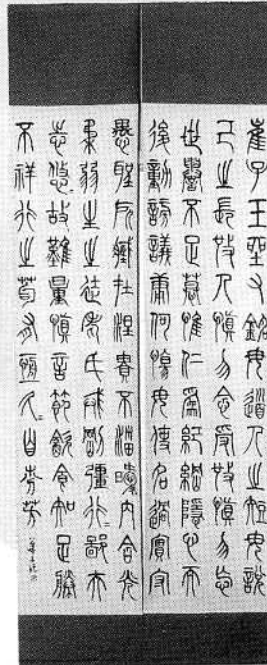 崔子玉坐又銘毋道人之短毋說
己之長施人慎勿念受施慎勿忘
世譽不足慕惟仁爲紀綱隱心而
後動謗議庸何傷毋使名過實守
愚聖所臧在涅貴不淄曖〻內含光
柔弱生之徒老氏戒剛彊行〻鄙夫
志悠〻故難量慎言節飲食知足勝
不祥行之苟有恆久〻自芬芳